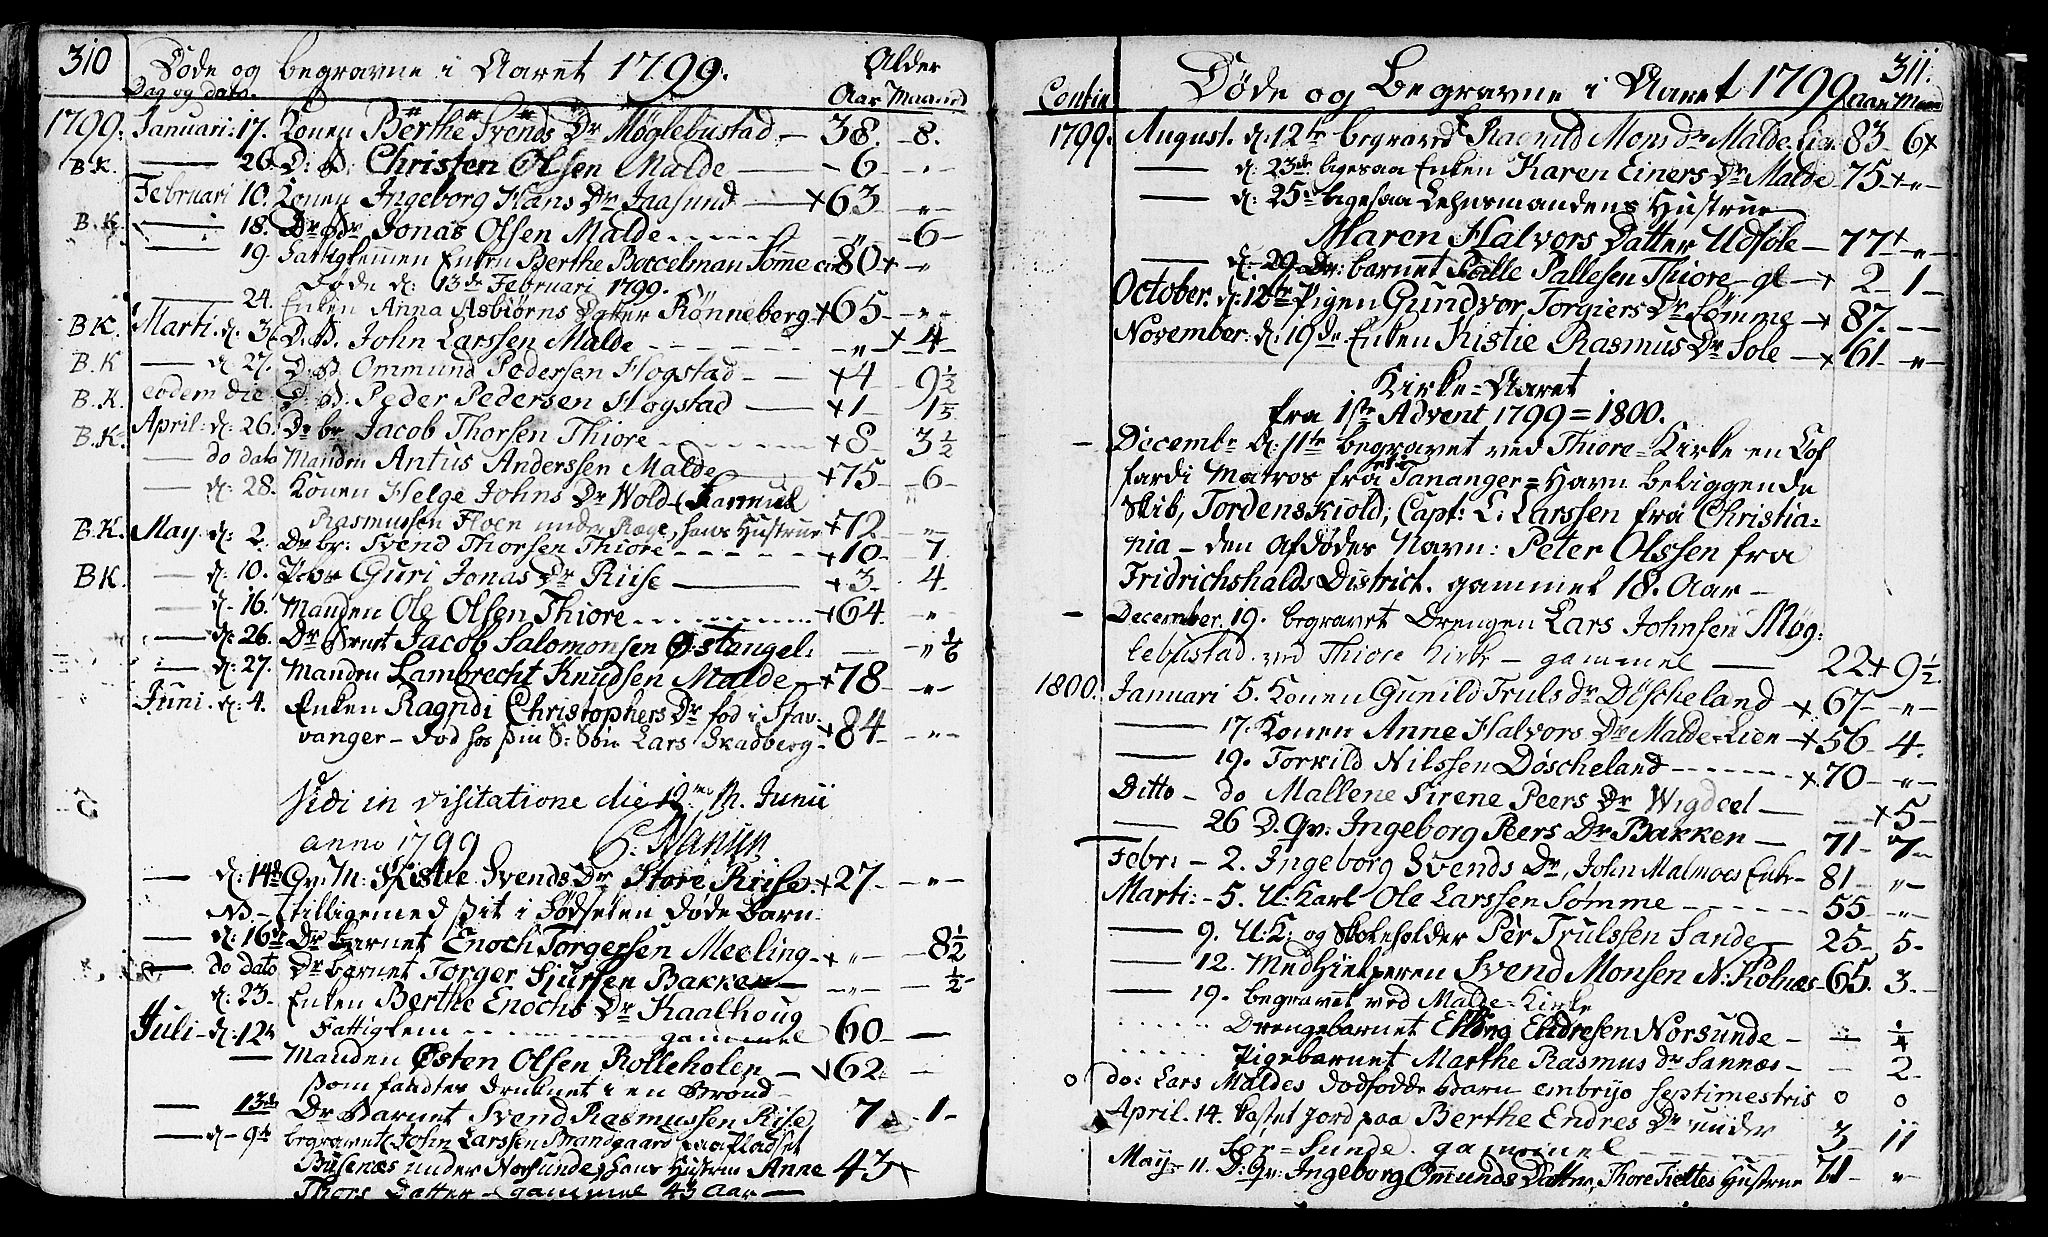 310 Døde og begravne i Aaret 1799. Alder
Dag og dato. Aar Maaned
1799. Januari: 17. Konen Berthe Svends Dr Møglebustad — 38. 8.
B K. — 26. D: B: Christen Olsen Malde — 6 -
Februari 10. Konen Ingeborg Hans Dr Jaasund — + 63 „
B. K. — 18. Dr Br Jonas Olsen Malde „ 6 -
19. Fattiglemmen Enken Berthe Somme 80 + „
Døde d: 13de Februari 1799.
— 24. Enken Anna Asbiørns Datter Rönneberg + 65 - „
B K. Marti d: 3. D. B. John Larssen Malde „ + 4 -
B. K — d: 27. D. B. Ommund Pedersen Hogstad — + 4 9 1/2
B. K. eodem die D. B. Peder Pedersen Hogstad — + 1 1 5
B. K. April d: 26. Dr br Jacob Thorsen Thiore + 8 3 1/2
— do dato Manden Antus Anderssen Malde + 75 - 6 -
— d: 28. Konen Helge Johns Dr Wold
Rasmussen under Ræge, hans Hustrue + 72 „
B. K. May d: 2. Dr br: Svend Thorsen Thiore + 10 - 7.
B K. — d: 10. Guri Jonas Dr Riise — + 3 4.
— d: 16. Manden Ole Olsen Thiore + 64 „
— d: 26. Dr Jacob Salomonsen Østangel: — „ 1/6
— d: 27. Manden Lambrecht Knudsen Malde + 78 „
Juni d: 4. Enken Ragndi Christophers Dr fød i Stav:
vanger — død hos sin S: Søn Lars Skadberg + 84 - „
Vidi in visitatione die 12mo M. Junii
anno 1799
— d: 14de Qv: M: Svends Dr Store Riise + 27 - „
NB. — tilligemed sit i Fødselen døde Barn.
— d: 16de Dr barnet Enoch Torgersen Meeling + „ 8 1/2
— do dato Dr barnet Torger Sjursen Bakken — „ 1/2
d: 23. Enken Berthe Enochs Dr Kaalhoug
Fattiglem gammel 60 —
Juli d: 12te
— Manden Østen Olsen Rolleholen + 62 -
som fandtes druknet i en Brønd
— 13de Dr Barnet Svend Rasmussen Riise 7 1 -
— d - 9de begravet John Larssen
Busenæs under Norsunde, hans Hustrue Anne 43 x
Thors Datter — gammel 43 Aar —
Contin. Døde og Begravne i Aaret 1799 311.
Aar Maan
1799. August. d: 12te begraved Ragnild Mons dr Malde-Lien 83 6 x
— d. 23de ligesaa Enken Karen Einers Dr Malde 75 + „
— d: 25de ligesaa Lehnsmandens Hustrue
Maren Halvors Datter Udsole — 77 + „
— d. 29. Dr: barnet Palle Pallesen Thiore gl — + 2 1 -
October. d: 12te Pigen Gundvor Torgiers Dr Sømme + 87. —
November: d: 19de Enken Kistie Rasmus Dr Sole — + 61 „
Kirke-Aaret
fra 1ste Advent 1799 = 1800.
— Decembr d: 11te begravet ved Thiore-Kirke en Cof
fardi Matros fra et i Tananger-Havn beliggende
Skib, Tordenskiold; Capt: L: Larssen fra Christia:
nia — den afdødes Navn: Peter Olssen fra
Fridrichshalds District. gammel 18. Aar —
— December. 19. begravet Drengen Lars Johnsen Møg:
lebustad ved Thiore Kirke — gammel — 22 + 9 1/2
1800. Januari 5. Konen Gunild Truls dr Døscheland + 67 - „
— 17. Konen Anne Halvors Dr Malde-Lien + 56 4.
— 19. Torkild Nilssen Døscheland + 70 - „
Ditto — do Mallene Sirene Peers Dr Wigdeel — + 5 -
— 26 D. Qv: Ingeborg Peers Dr Bakken — 71 7 -
Febr: — 2. Ingeborg Svends Dr, John Malmoes Enke — 81 „
Marti: — 5. U: Karl Ole Larssen Sømme 55 „
— 9. U:K: og Skoleholder Per Trulssen Sande 25 5.
— 12. Medhielperen Svend Monsen N: Kolnæs 65. 3.
— 19. begravet ved Malde-Kirke
Drengebarnet Elling Endresen Norsunde — 1/4
Pigebarnet Marthe Rasmus dr Sannæs — 2.
o do: Lars Maldes dødfødde Barn embryo septimestris o o
April. 14. kastet jord paa Berthe Endres Dr under
Sør-Sunde. gammel 3 11
Maij — 11. D: Qv: Ingeborg Ommunds Datter, Thore Hustrue 71 „